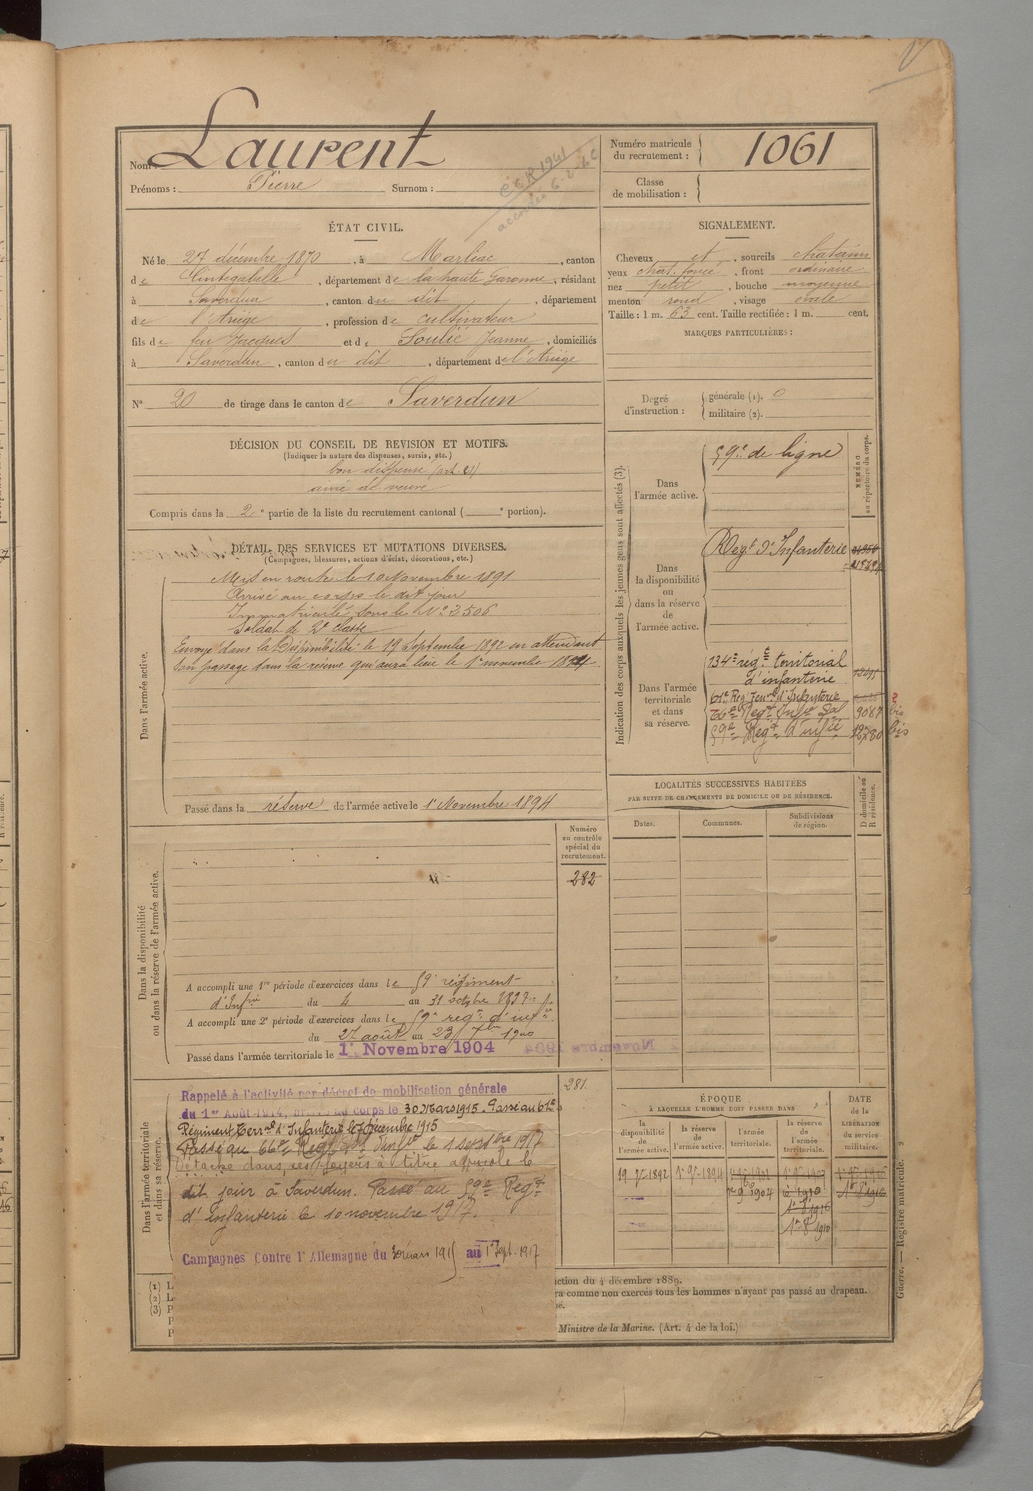 Nom : Laurent
Prénoms : Pierre Surnom :
Numéro matricule du recrutement : 1061
Classe de mobilisation :
C C R 1941
ÉTAT CIVIL.
Né le 27 décembre 1870, à Marliac, canton
de Cintegabelle, département de la haute Garonne, résidant
à Saverdun, canton du dit, département
de l'Ariège, profession de cultivateur
fils de feu Jacques et de Soulié Jeanne, domiciliés
à Saverdun, canton du dit, département de l'Ariège
N° 20 de tirage dans le canton de Saverdun
SIGNALEMENT.
Cheveux et, sourcils chatains
yeux chat. foncé, front ordinaire
nez petit, bouche moyenne
menton rond, visage ovale
Taille : 1 m. 63 cent. Taille rectifiée : 1 m. cent.
MARQUES PARTICULIÈRES :
Degré d'instruction : générale (1). 0
militaire (2).
DÉCISION DU CONSEIL DE REVISION ET MOTIFS.
(Indiquer la nature des dispenses, sursis, etc.)
bon dispensé (art. 21)
ainé de veuve
Compris dans la 2e partie de la liste du recrutement cantonal ( e portion).
DÉTAIL DES SERVICES ET MUTATIONS DIVERSES.
(Campagnes, blessures, actions d'éclat, décorations, etc.)
Dans l'armée active.
Mis en route le 10 Novembre 1891
Arrivé au corps le dit jour
Immatriculé sous le N° 3506
Soldat de 2e classe
Envoyé dans la Disponibilité le 19 Septembre 1892 en attendant
son passage dans la réserve qui aura lieu le 1er novembre 1894
Passé dans la réserve de l'armée active le 1er Novembre 1894
Indication des corps auxquels les jeunes gens sont affectés (3).
NUMÉRO au répertoire du corps.
Dans l'armée active.
59e de ligne
Dans la disponibilité ou dans la réserve de l'armée active.
Regt d'Infanterie
Dans l'armée territoriale et dans sa réserve.
134e rég. t territorial
d'infanterie
61e Reg Terral d'Infanterie
66e Regt Inft 9087 bis
59e Regt d'infie bis
LOCALITÉS SUCCESSIVES HABITÉES
PAR SUITE DE CHANGEMENTS DE DOMICILE OU DE RÉSIDENCE.
Dates. Communes. Subdivisions de région. D domicile ou R résidence.
Numéro au contrôle spécial du recrutement.
282
Dans la disponibilité ou dans la réserve de l'armée active.
A accompli une 1re période d'exercices dans le 59e régiment
d'Infie du 4 au 31 octobre 1897
A accompli une 2e période d'exercices dans le 59e regt d'infie
du 27 août au 23 7bre 1900
Passé dans l'armée territoriale le 1er Novembre 1904
281
Dans l'armée territoriale et dans sa réserve.
Rappelé à l'activité par décret de mobilisation générale
du 1er Août 1914, arrivé au corps le 30 Mars 1915. Passé au 61e
Régiment Terral d'Infanterie le 7 décembre 1915
Passé au 66e Regt d'Infie le 1 septbre 1917
Détaché dans ses foyers à titre agricole le
dit jour à Saverdun. Passé au 59e Regt
d'Infanterie le 10 novembre 1917.
Campagnes Contre l'Allemagne du 30 mars 1915 au 1er Sept. 1917
ÉPOQUE
À LAQUELLE L'HOMME DOIT PASSER DANS
la disponibilité de l'armée active. la réserve de l'armée active. l'armée territoriale. la réserve de l'armée territoriale.
DATE de la LIBÉRATION du service militaire.
19 7 1892 1er 9bre 1894
(1) L
(2) L
(3) P
P
P
ction du 4 décembre 1889.
ra comme non exercés tous les hommes n'ayant pas passé au drapeau.
Ministre de la Marine. (Art. 4 de la loi.)
Guerre. — Registre matricule. 2